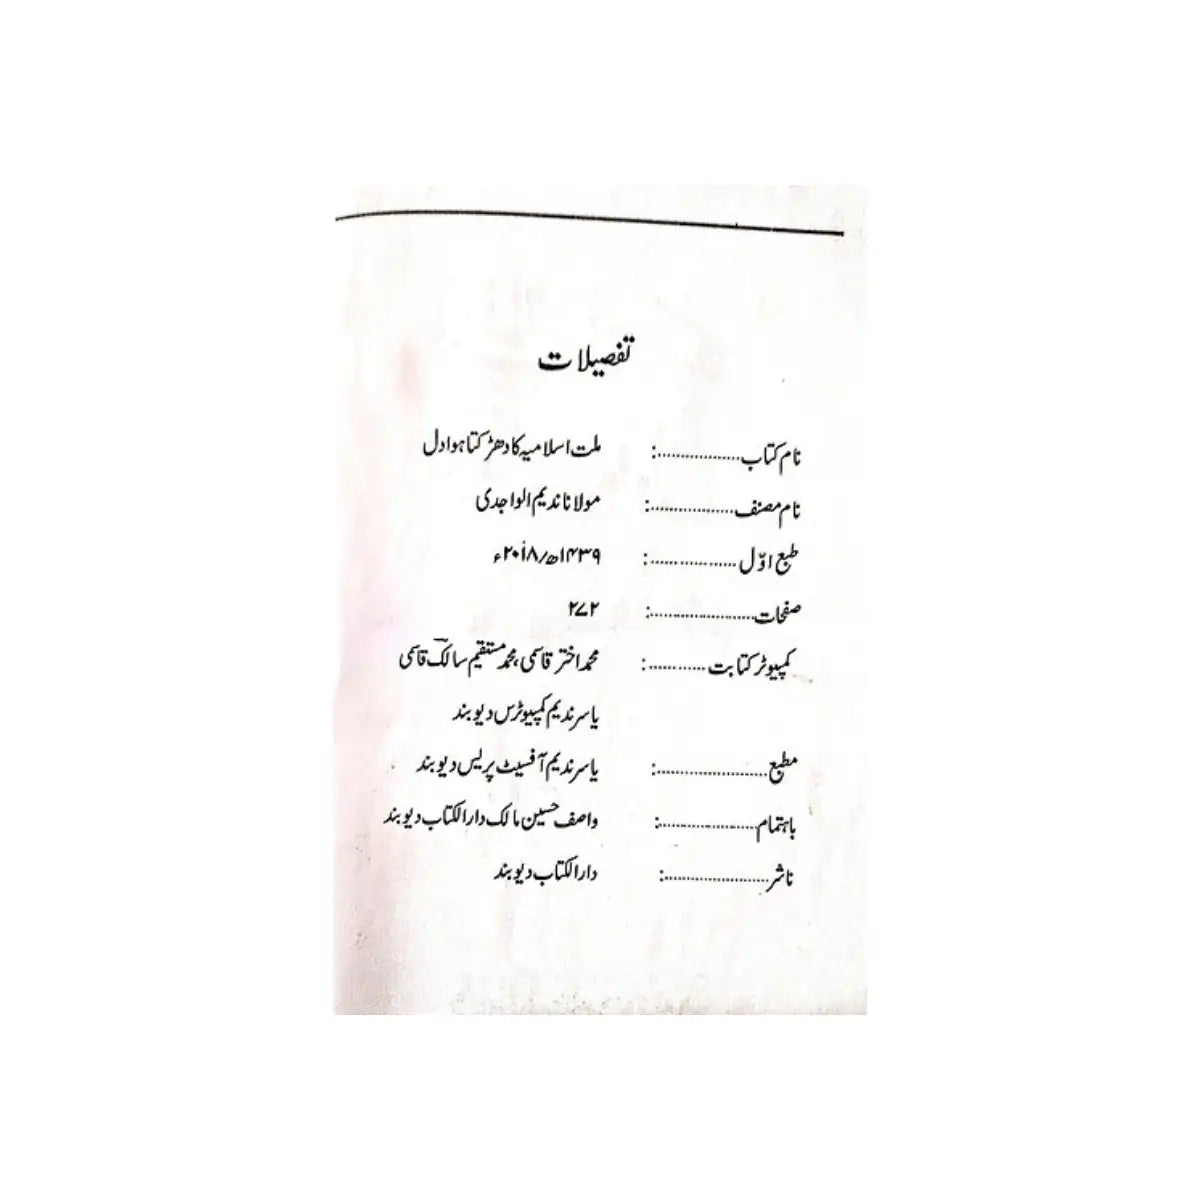 تفصیلات
نام کتاب..................: ملت اسلامیہ کا دھڑکتا ہوا دل
نام مصنف..................: مولانا ندیم الواجدی
طبع اوّل..................: ۱۴۳۹ھ/۲۰۱۸ء
صفحات......................: ۲۷۲
کمپیوٹر کتابت............: محمد اختر قاسمی، محمد مستقیم سالکؔ قاسمی
یاسر ندیم کمپیوٹرس دیوبند
مطبع........................: یاسر ندیم آفسیٹ پریس دیوبند
باہتمام.....................: واصف حسین مالک دارالکتاب دیوبند
ناشر.......................: دارالکتاب دیوبند